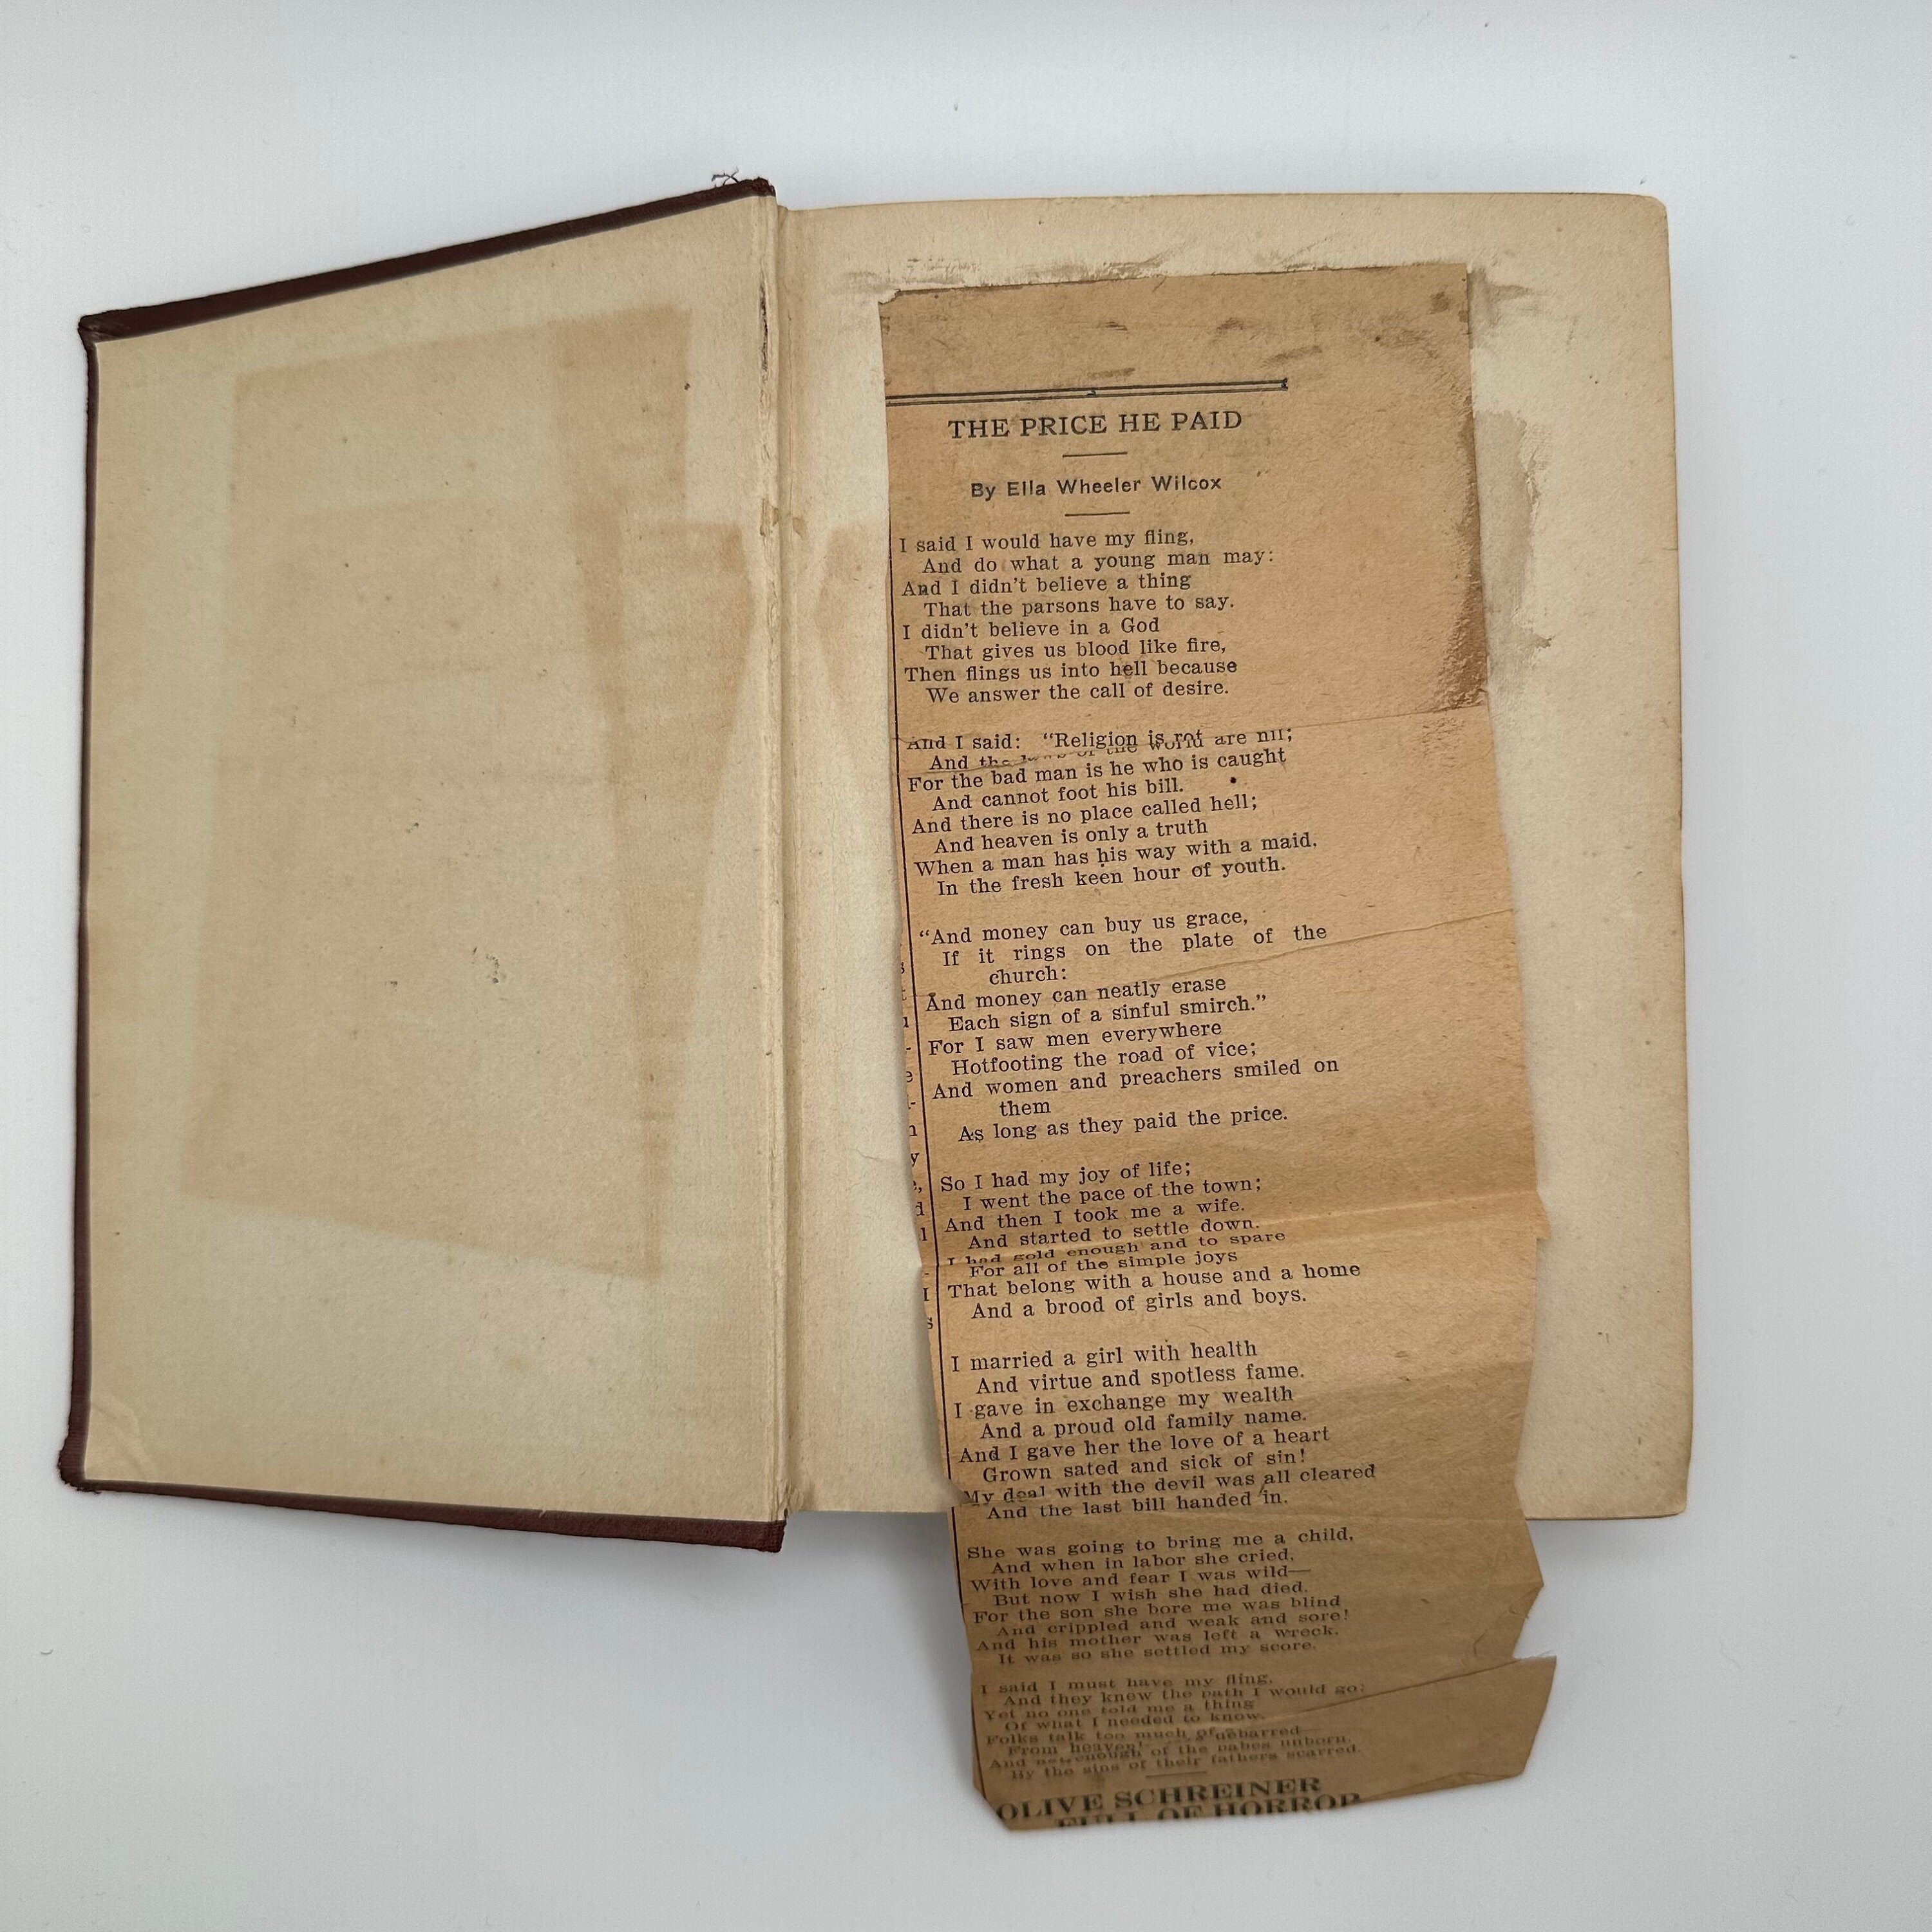 THE PRICE HE PAID
By Ella Wheeler Wilcox
I said I would have my fling,
And do what a young man may:
And I didn't believe a thing
That the parsons have to say.
I didn't believe in a God
That gives us blood like fire,
Then flings us into hell because
We answer the call of desire.
And I said: “Religion is rot
And the laws of the world are nil;
For the bad man is he who is caught
And cannot foot his bill.
And there is no place called hell;
And heaven is only a truth
When a man has his way with a maid,
In the fresh keen hour of youth.
“And money can buy us grace,
If it rings on the plate of the
church:
And money can neatly erase
Each sign of a sinful smirch.”
For I saw men everywhere
Hotfooting the road of vice;
And women and preachers smiled on
them
As long as they paid the price.
So I had my joy of life;
I went the pace of the town;
And then I took me a wife.
And started to settle down.
I had gold enough and to spare
For all of the simple joys
That belong with a house and a home
And a brood of girls and boys.
I married a girl with health
And virtue and spotless fame.
I gave in exchange my wealth
And a proud old family name.
And I gave her the love of a heart
Grown sated and sick of sin!
My deal with the devil was all cleared
And the last bill handed in.
She was going to bring me a child,
And when in labor she cried,
With love and fear I was wild—
But now I wish she had died.
For the son she bore me was blind
And crippled and weak and sore!
And his mother was left a wreck.
It was so she settled my score.
I said I must have my fling,
And they knew the path I would go;
Yet no one told me a thing
Of what I needed to know.
Folks talk too much of debarred—
From heaven!
And not enough of the babes unborn,
By the sins of their fathers scarred.
OLIVE SCHREINER
FULL OF HORROR